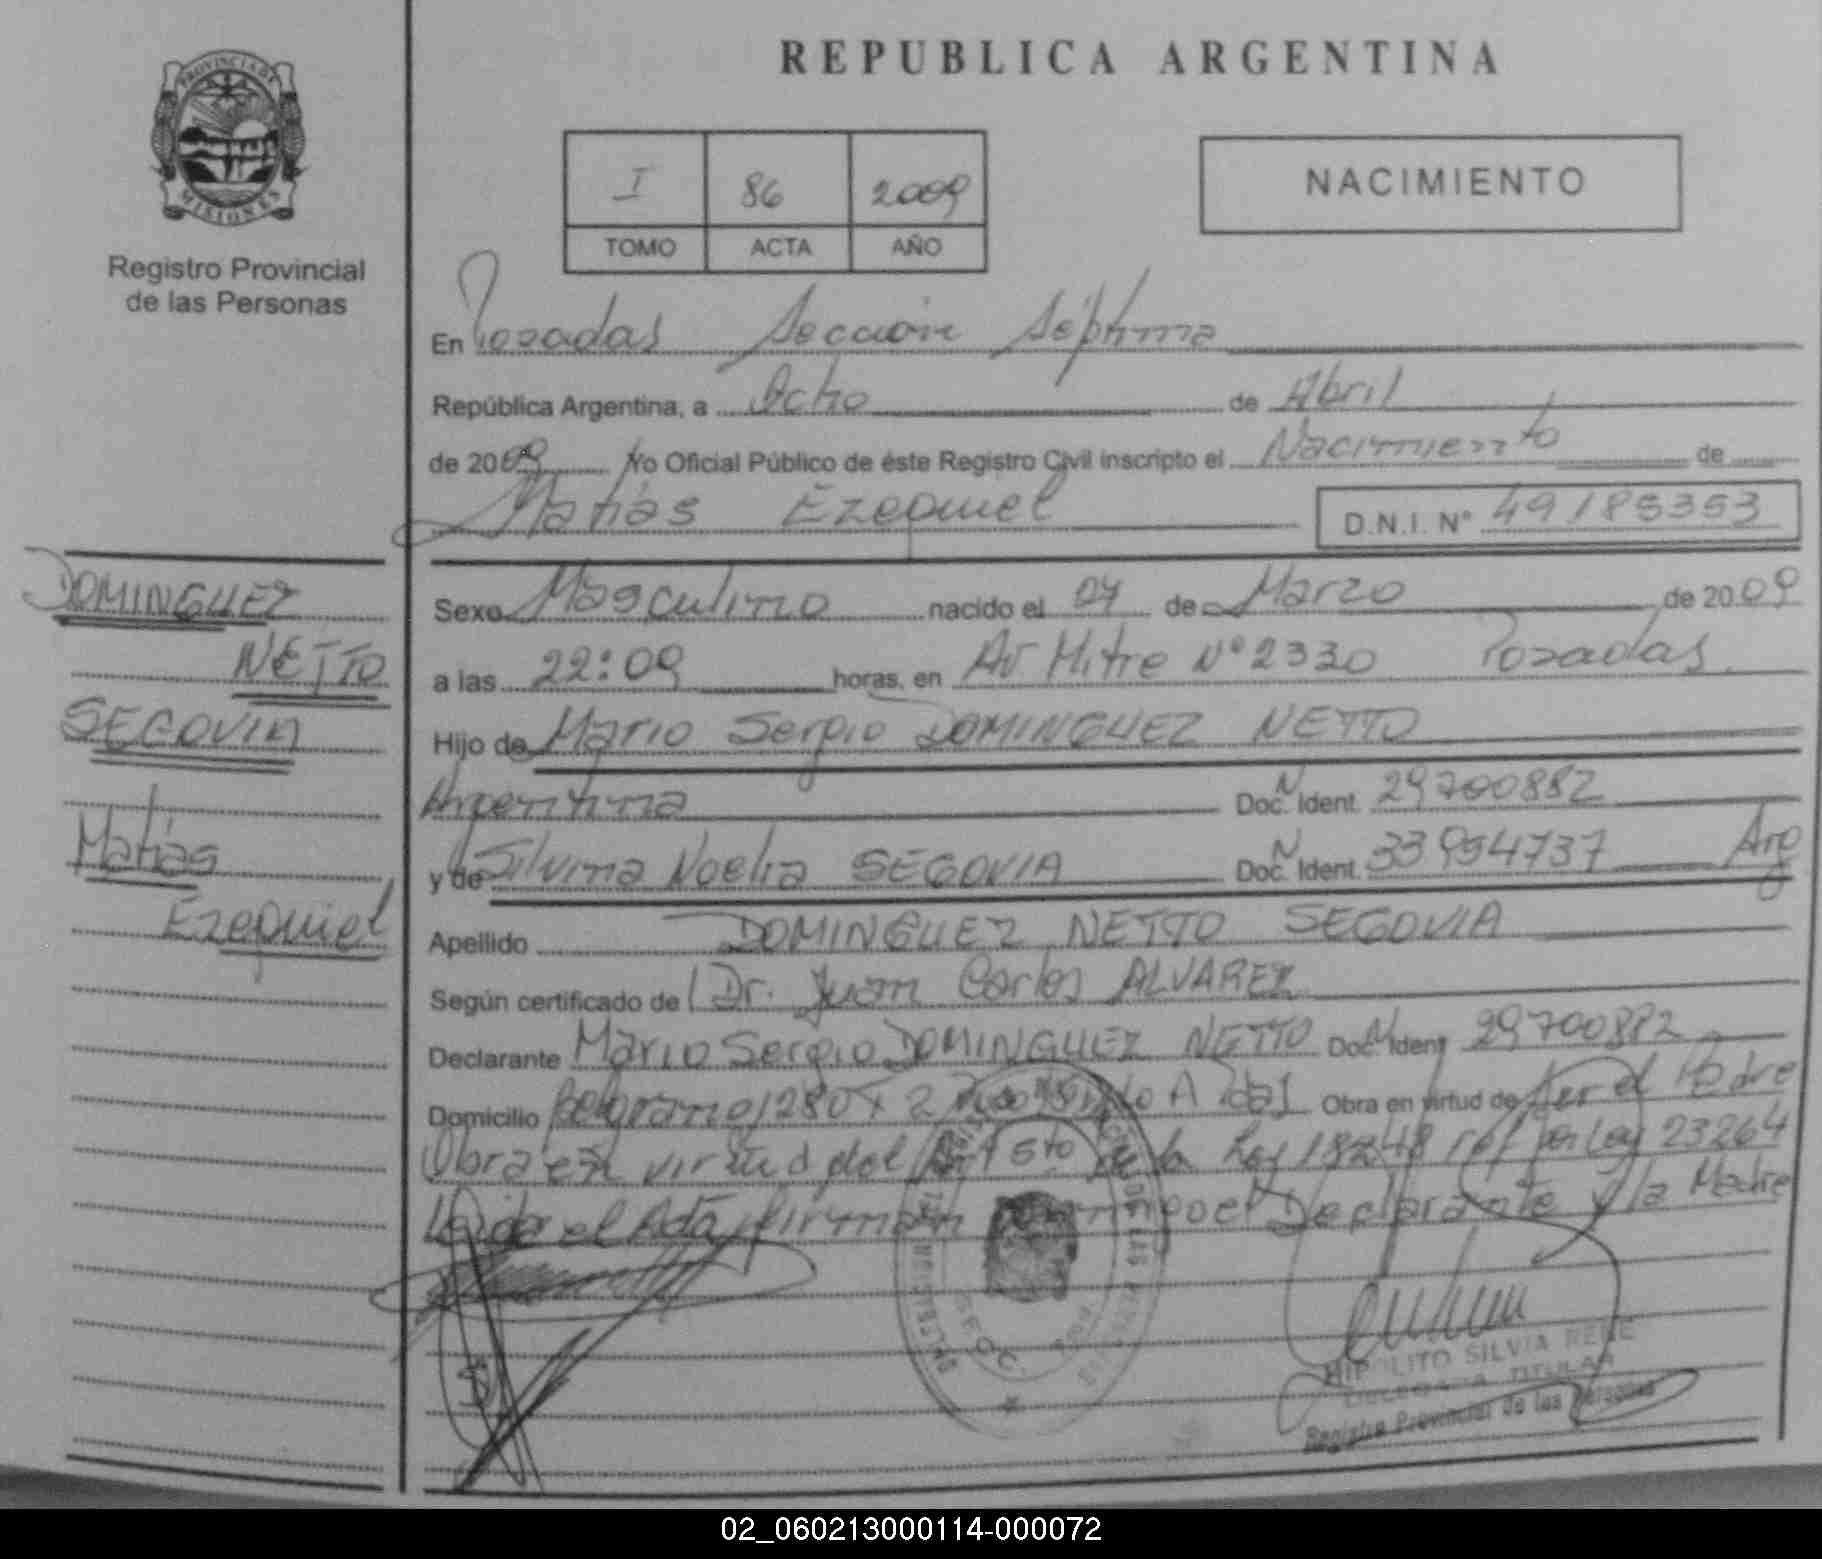 REPUBLICA ARGENTINA
PROVINCIA DE
MISIONES
Registro Provincial
de las Personas
I 86 2009
TOMO ACTA AÑO
NACIMIENTO
En Posadas Sección Séptima
República Argentina, a Ocho de Abril
de 2009 Yo Oficial Público de éste Registro Civil inscripto el Nacimiento de
Matías Ezequiel D.N.I. Nº 49185353
DOMINGUEZ
NETTO
SEGOVIA
Matías
Ezequiel
Sexo Masculino nacido el 07 de Marzo de 2009
a las 22:09 horas, en Av Mitre Nº 2330 Posadas
Hijo de Mario Sergio DOMINGUEZ NETTO
Argentina Doc. N Ident. 29700882
y de Silvina Noelia SEGOVIA Doc. N Ident. 33954737 Arg
Apellido DOMINGUEZ NETTO SEGOVIA
Según certificado de Dr. Juan Carlos ALVAREZ
Declarante Mario Sergio DOMINGUEZ NETTO Doc. N Ident 29700882
Domicilio Belgrano 1280 A Obra en virtud de Ser el Padre
Obra en virtud del Art 5to de la Ley 18248 ref por Ley 23264
Leida el Acta, firman conmigo el Declarante y la Madre
HIPOLITO SILVIA RENE
DELEGADA TITULAR
Registro Provincial de las Personas
02_060213000114-000072